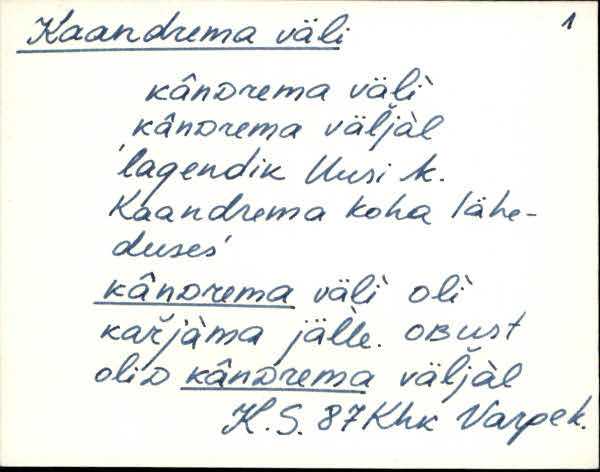 Kaandrema väli 1
kânᴅrema välì̬
kânᴅrema väľjàl
'lagendik Uusi k.
Kaandrema koha lähe-
duses'
kânᴅrema välì̬ olì
kařjàma jälle. oʙust
oliᴅ kânᴅrema väľjàl
K. S. 87 Khk Varpe k.